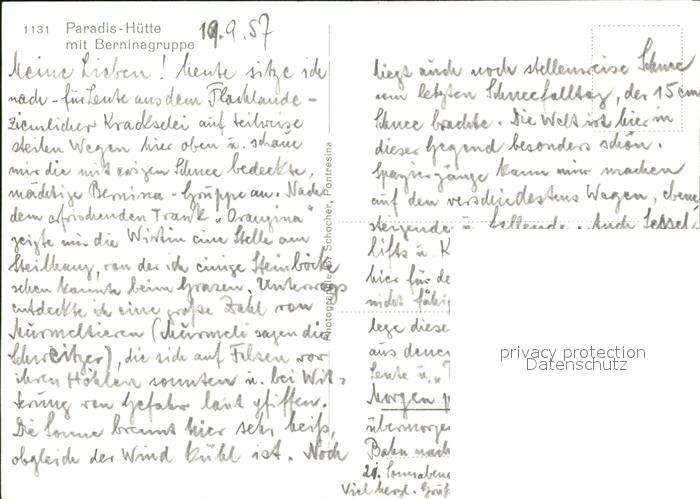 1131 Paradis-Hütte
mit Berninagruppe
19.9.57
Meine Lieben! heute sitze ich
nach - für Leute aus dem Flachlande -
ziemlicher Krackselei auf teilweise
steilen Wegen hier oben u. schaue
mir die mit ewigem Schnee bedeckte,
mächtige Bernina-Gruppe an. Nach
dem erfrischenden Trank "Orangina"
zeigte mir die Wirtin eine Stelle am
Steilhang, von der ich einige Steinböcke
sehen konnte beim Grasen. Unterwegs
entdeckte ich eine große Zahl von
Murmeltieren (Murmeli sagen die
Schweitzer), die sich auf Felsen vor
ihren Höhlen sonnten u. bei Wit-
terung von Gefahr laut pfiffen.
Die Sonne brennt hier sehr heiß,
obgleich der Wind kühl ist. Noch
Photographie B. Schocher, Pontresina
liegt auch noch stellenweise Schnee
vom letzten Schneefalltag, der 15 cm
Schnee brachte. Die Welt ist hier in
dieser Gegend besonders schön.
Spaziergänge kann man machen
auf den verschiedensten Wegen, ebene,
steigende u. fallende. Auch Sessel-
lifts u. K
hier für de
nicht fähig
lege diese
aus denen
Leute u.
Morgen
übermorgen
Bahn nach
21. Sonnabend
Viel herzl. Grüß
privacy protection
Datenschutz